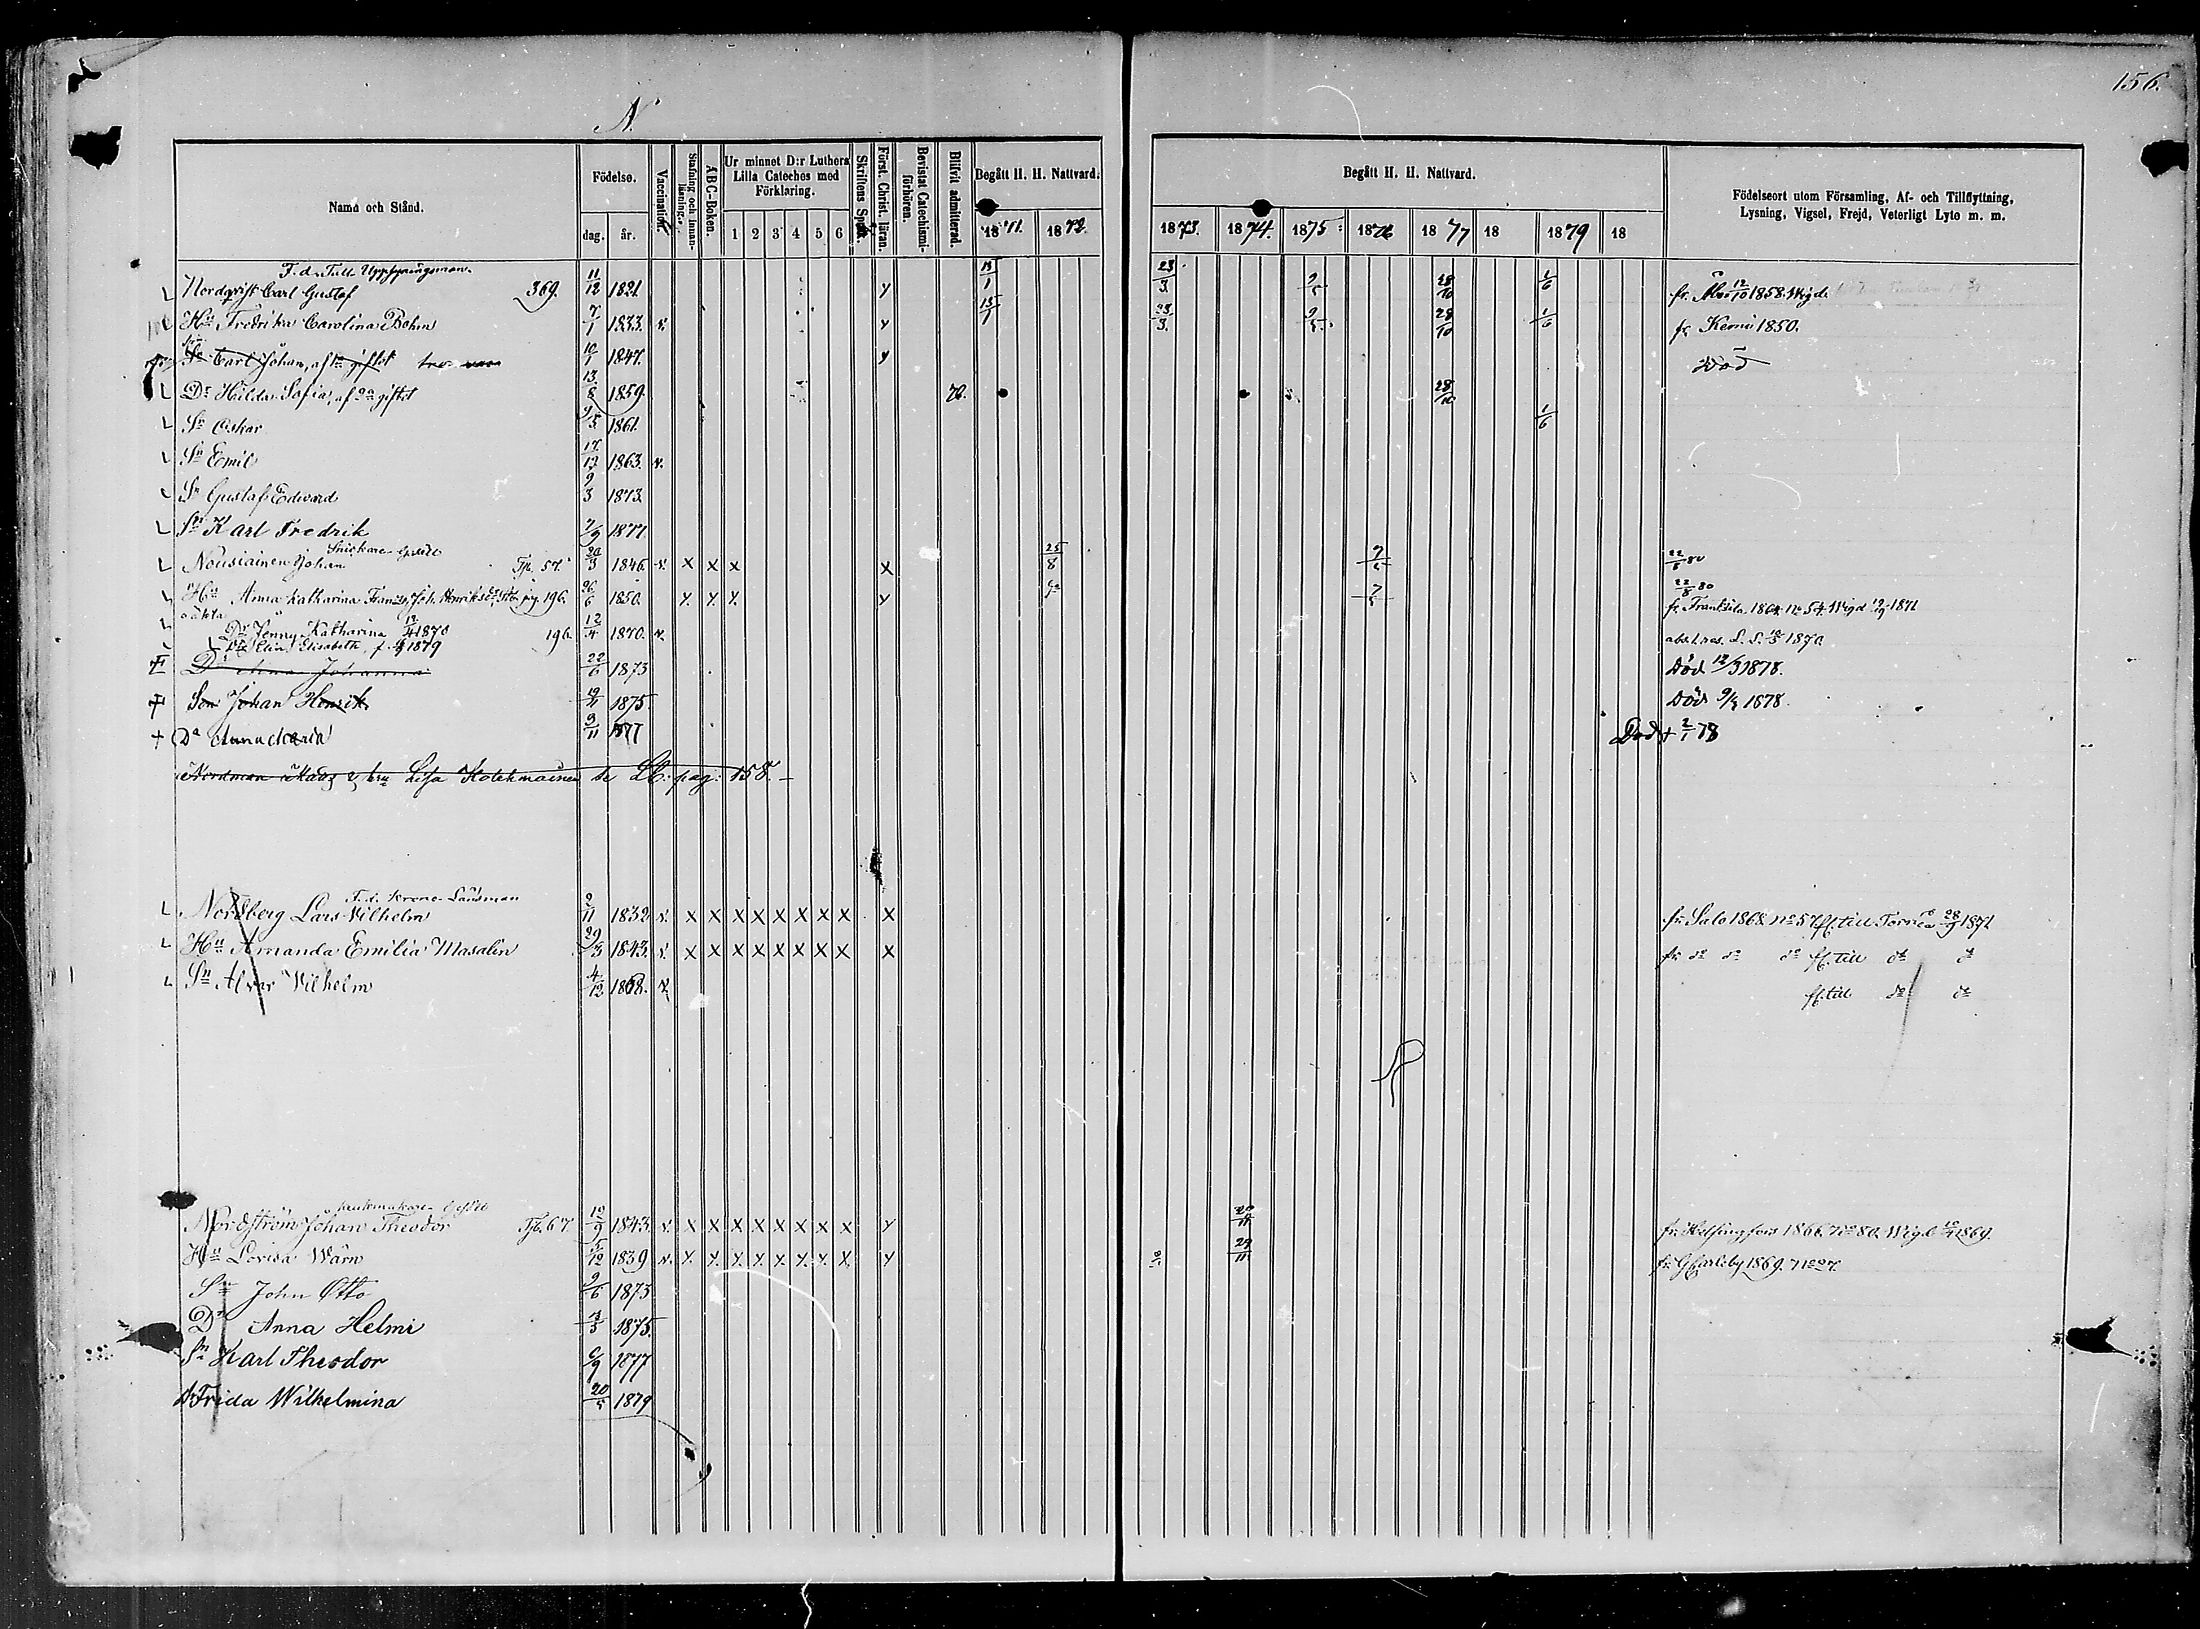 156.
N.
Namn och Stånd.
Födelse.
dag. år.
Vaccination.
Stafning och innan-läsning.
ABC-Boken.
Ur minnet D:r Luthers Lilla Cateches med Förklaring.
1 2 3 4 5 6
Skriftens Språk.
Först. Christ. läran.
Bevistat Catechismi-förhören.
Blifvit admitterad.
Begått H. H. Nattvard.
1871. 1872.
Begått H. H. Nattvard.
1873. 1874. 1875 1876 1877 18 1879 18
Födelseort utom Församling, Af- och Tillflyttning,
Lysning, Vigsel, Frejd, Veterligt Lyte m. m.
F.d. Tull Uppsyningsman
Nordqvist Carl Gustaf 369. 11/12 1821. y 13/1 23/3 9/5 28/10 1/6 fr. Åbo 12/10 1858. Wigd.
Hu Fredrika Carolina Bohm 7/1 1833. v. y 13/1 23/3. 9/5 28/10 1/6 fr Kemi 1850.
Carl Johan, af 1a giftet 10/1 1847. y Död
Dr Hilda Sofia, af 2a giftet 13/8 1859. 78. 28/10
Sn Oskar 9/5 1861. 1/6
Sn Emil 17/12 1863. v.
Sn Gustaf Edward 9/3 1873.
Sn Karl Fredrik 7/9 1877
Snickare Gesäll
Nousiainen Johan Tjb. 57. 20/3 1846. v. X X X X 25/8 7/5 22/8 80
Hu Anna Katharina pag 196. 26/6 1850. y. y. y. y do 7/5 22/8 80
fr. Frantsila 1864. No 54. Wigd 1871
oäkta
Dr Jenny Katharina 12/4 1870 196. 12/4 1870. v. abs. l. res. S. S. 1870.
Dr Elin Elisabeth, f. 1879
Johanna 22/6 1873 Död 12/3 1878.
Son Johan Henrik 1875 Död 9/3 1878.
Dr Anna Maria 9/11 1877 Död + 2/1 78
Nordman Mats & hu Lisa Kolehmainen se LB: pag: 158.
F.d. Krono Länsman
Nordberg Lars Wilhelm 2/11 1832 v. X X X X X X X X X fr. Salo 1868 No 57 fl. till Torneå 28/9 1871
Hu Amanda Emilia Masalin 29/3 1843. v. X X X X X X X X X fr do do do fl. till do do
Sn Alvar Wilhelm 4/12 1868. v. fl. till do do
Gesäll
Nordström Johan Theodor Tjb. 67. 10/9 1843. v. X X X X X X X X y 29/11 fr. Helsingfors 1866. No 80. Wigd 1869.
Hu Lovisa Wärn 5/12 1839 v. y. y. y. y. y. y. y. y. y 29/11 fr. GCarleby 1869. No 27.
Sn John Otto 9/6 1873
Dr Anna Helmi 1875.
Sn Karl Theodor 6/9 1877
Dr Frida Wilhelmina 20/5 1879